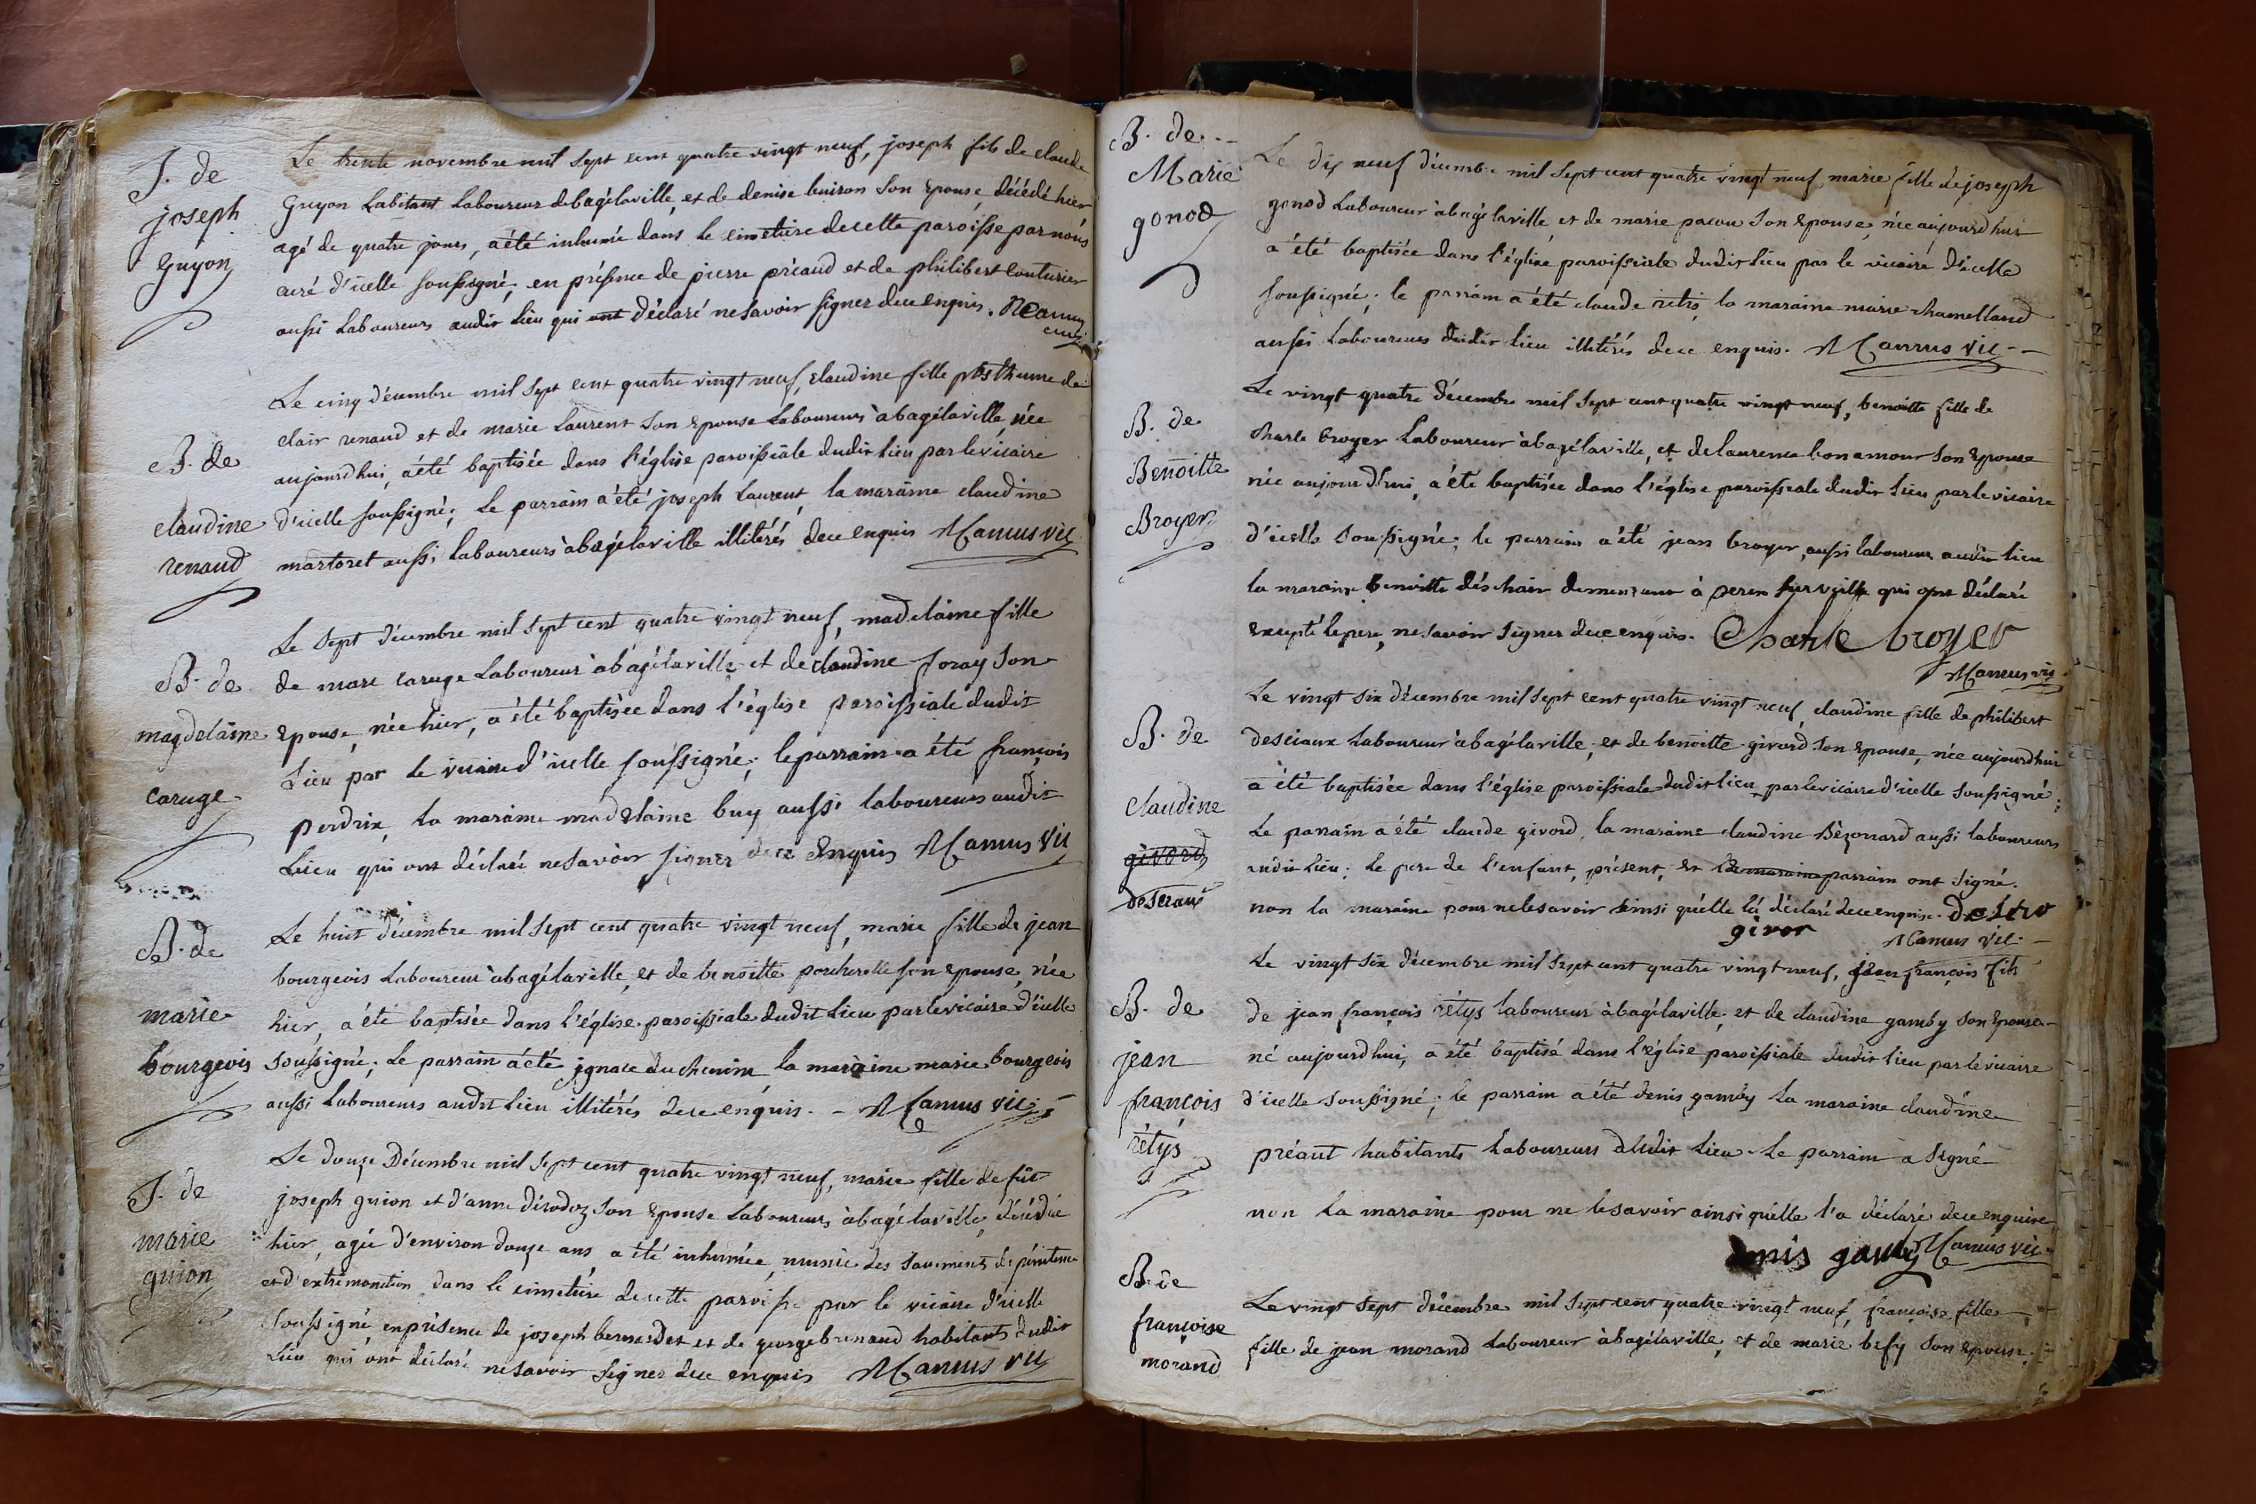 J. de
joseph
guyon
Le trente novembre mil sept cent quatre vingt neuf, joseph fils de claude
guyon habitant laboureur de bagélaville, et de denise buiron son epouse, décédé hier
agé de quatre jours, a été inhumé dans le cimetiere de cette paroisse par nous
curé d'icelle soussigné, en présence de pierre préaud et de philibert couturier
aussi laboureurs audit lieu qui ont déclaré ne savoir signer de ce enquis.
curé
B. de
claudine
renaud
Le cinq décembre mil sept cent quatre vingt neuf, claudine fille posthume de
clair renaud et de marie laurent son epouse laboureurs à bagélaville née
aujourd'hui, a été baptisée dans l'église paroissiale dudit lieu par le vicaire
d'icelle soussigné; le parrain a été joseph laurent, la maraine claudine
martoret aussi laboureurs à bagélaville illitérés de ce enquis Mamus vic
B. de
magdelaine
caruge
Le sept décembre mil sept cent quatre vingt neuf, madelaine fille
de marc caruge laboureur à bagélaville et de claudine foray son
epouse, née hier, a été baptisée dans l'église paroissiale dudit
lieu par le vicaire d'icelle soussigné; le parrain a été françois
perdrix, la maraine madelaine buy aussi laboureurs audit
lieu qui ont déclaré ne savoir signer de ce enquis Mamus vic
B. de
marie
bourgeois
Le huit décembre mil sept cent quatre vingt neuf, marie fille de jean
bourgeois laboureur à bagélaville, et de benoitte porcherelle son epouse, née
hier, a été baptisée dans l'église paroissiale dudit lieu par le vicaire d'icelle
soussigné; le parrain a été ignace duchenim la maraine marie bourgeois
aussi laboureurs audit lieu illitérés de ce enquis. - Mamus vic
J. de
marie
guion
Le douze Décembre mil sept cent quatre vingt neuf, marie fille de fût
joseph guion et d'anne dérodoz son epouse laboureurs à bagélaville, décédée
hier, agée d'environ douze ans a été inhumée, munie des sacrements de pénitence
et d'extrêmonction dans le cimetiere de cette paroisse par le vicaire d'icelle
soussigné, en présence de joseph bernardet et de george brenaud habitants dudit
lieu qui ont déclaré ne savoir signer de ce enquis Mamus vic
B. de
Marie
gonod
Le dix neuf décembre mil sept cent quatre vingt neuf marie fille de joseph
gonod laboureur à bagélaville et de marie pacou son epouse, née aujourd'hui
a été baptisée dans l'église paroissiale dudit lieu par le vicaire d'icelle
soussigné; le parrain a été claude rétis, la maraine marie chamelland
aussi laboureurs dudit lieu illitérés de ce enquis. Mamus vic
B. de
Benoitte
Broyer
Le vingt quatre décembre mil sept cent quatre vingt neuf, benoitte fille de
charle broyer laboureur à bagélaville, et de laurence bonamour son epouse
née aujourd'hui, a été baptisée dans l'église paroissiale dudit lieu par le vicaire
d'icelle soussigné; le parrain a été jean broyer, aussi laboureur audit lieu
la maraine benoitte déschair demeurant à perex qui ont déclaré
excepté le pere, ne savoir signer de ce enquis. Charle broyer
Mamus vic
B. de
claudine
givord
desciaux
Le vingt six décembre mil sept cent quatre vingt neuf, claudine fille de philibert
desciaux laboureur à bagélaville, et de benoitte givord son epouse, née aujourd'hui
a été baptisée dans l'église paroissiale dudit lieu par le vicaire d'icelle soussigné;
le parrain a été claude givord, la maraine claudine Bézonnard aussi laboureurs
audit lieu; le pere de l'enfant, présent, et le maraine parrain ont signé.
non la maraine pour ne le savoir ainsi qu'elle l'a déclaré de ce enquise.
givor Mamus vic
B. de
jean
françois
rétys
Le vingt six décembre mil sept cent quatre vingt neuf, jean françois fils
de jean françois rétys laboureur à bagélaville, et de claudine gamby son epouse
né aujourd'hui, a été baptisé dans l'église paroissiale dudit lieu par le vicaire
d'icelle soussigné; le parrain a été denis gamby la maraine claudine
préaut habitants laboureurs audit lieu. le parrain a signé
non la maraine pour ne le savoir ainsi qu'elle l'a déclaré de ce enquise
denis gamby Mamus vic
B. de
françoise
morand
Le vingt sept décembre mil sept cent quatre vingt neuf, françoise fille
fille de jean morand laboureur à bagélaville, et de marie befy son epouse,